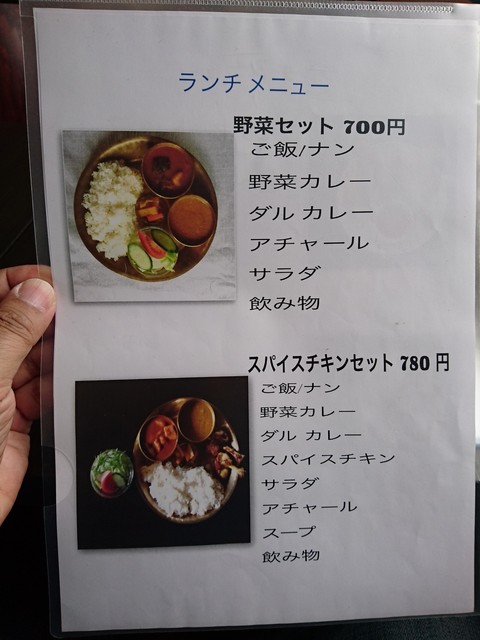 ランチ メニュー
野菜セット 700円
ご飯/ナン
野菜カレー
ダル カレー
アチャール
サラダ
飲み物
スパイスチキンセット 780 円
ご飯/ナン
野菜カレー
ダル カレー
スパイスチキン
サラダ
アチャール
スープ
飲み物